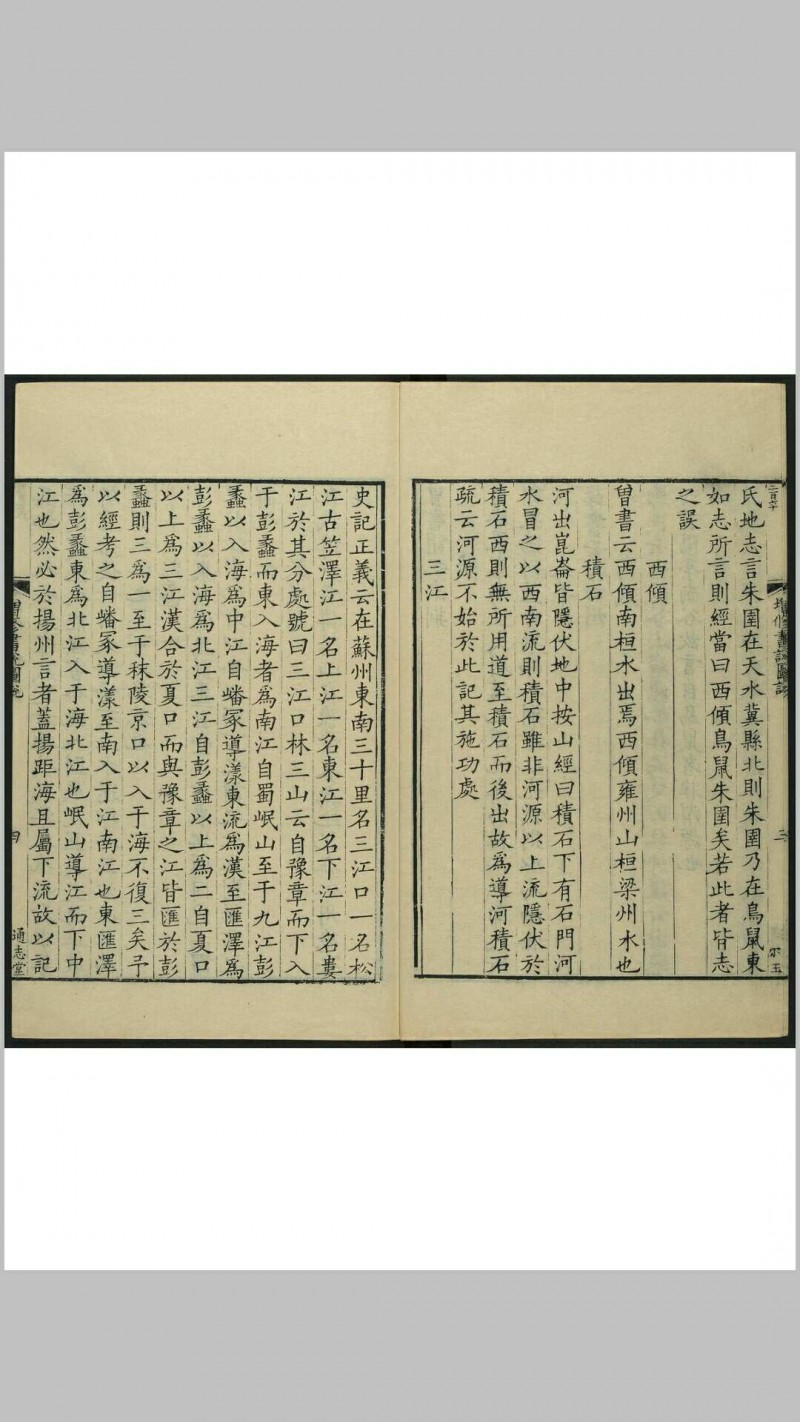 氏地志言朱圉在天水冀縣北則朱圉乃在鳥鼠東
如志所言則經當曰西傾鳥鼠朱圉矣若此者皆志
之誤
西傾
曾書云西傾南桓水出焉西傾雍州山桓梁州水也
積石
河出崑崙皆隱伏地中按山經曰積石下有石門河
水冒之以西南流則積石雖非河源以上流隱伏於
積石西則無所用道至積石而後出故為導河積石
疏云河源不始於此記其施功處
三江
三
史記正義云在蘇州東南三十里名三江口一名松
江古笠澤江一名上江一名東江一名下江一名婁
江於其分處號曰三江口林三山云自豫章而下入
于彭蠡而東入海者為南江自蜀岷山至于九江彭
蠡以入海為中江自嶓冢導漾東流為漢至匯澤為
彭蠡以入海為北江三江自彭蠡以上為二自夏口
以上為三江漢合於夏口而與豫章之江皆匯於彭
蠡則三為一至于秣陵京口以入于海不復三矣予
以經考之自嶓冢導漾至南入于江南江也東匯澤
為彭蠡東為北江入于海北江也岷山導江而下中
江也然必於揚州言者蓋揚距海且屬下流故以記
四
通志堂